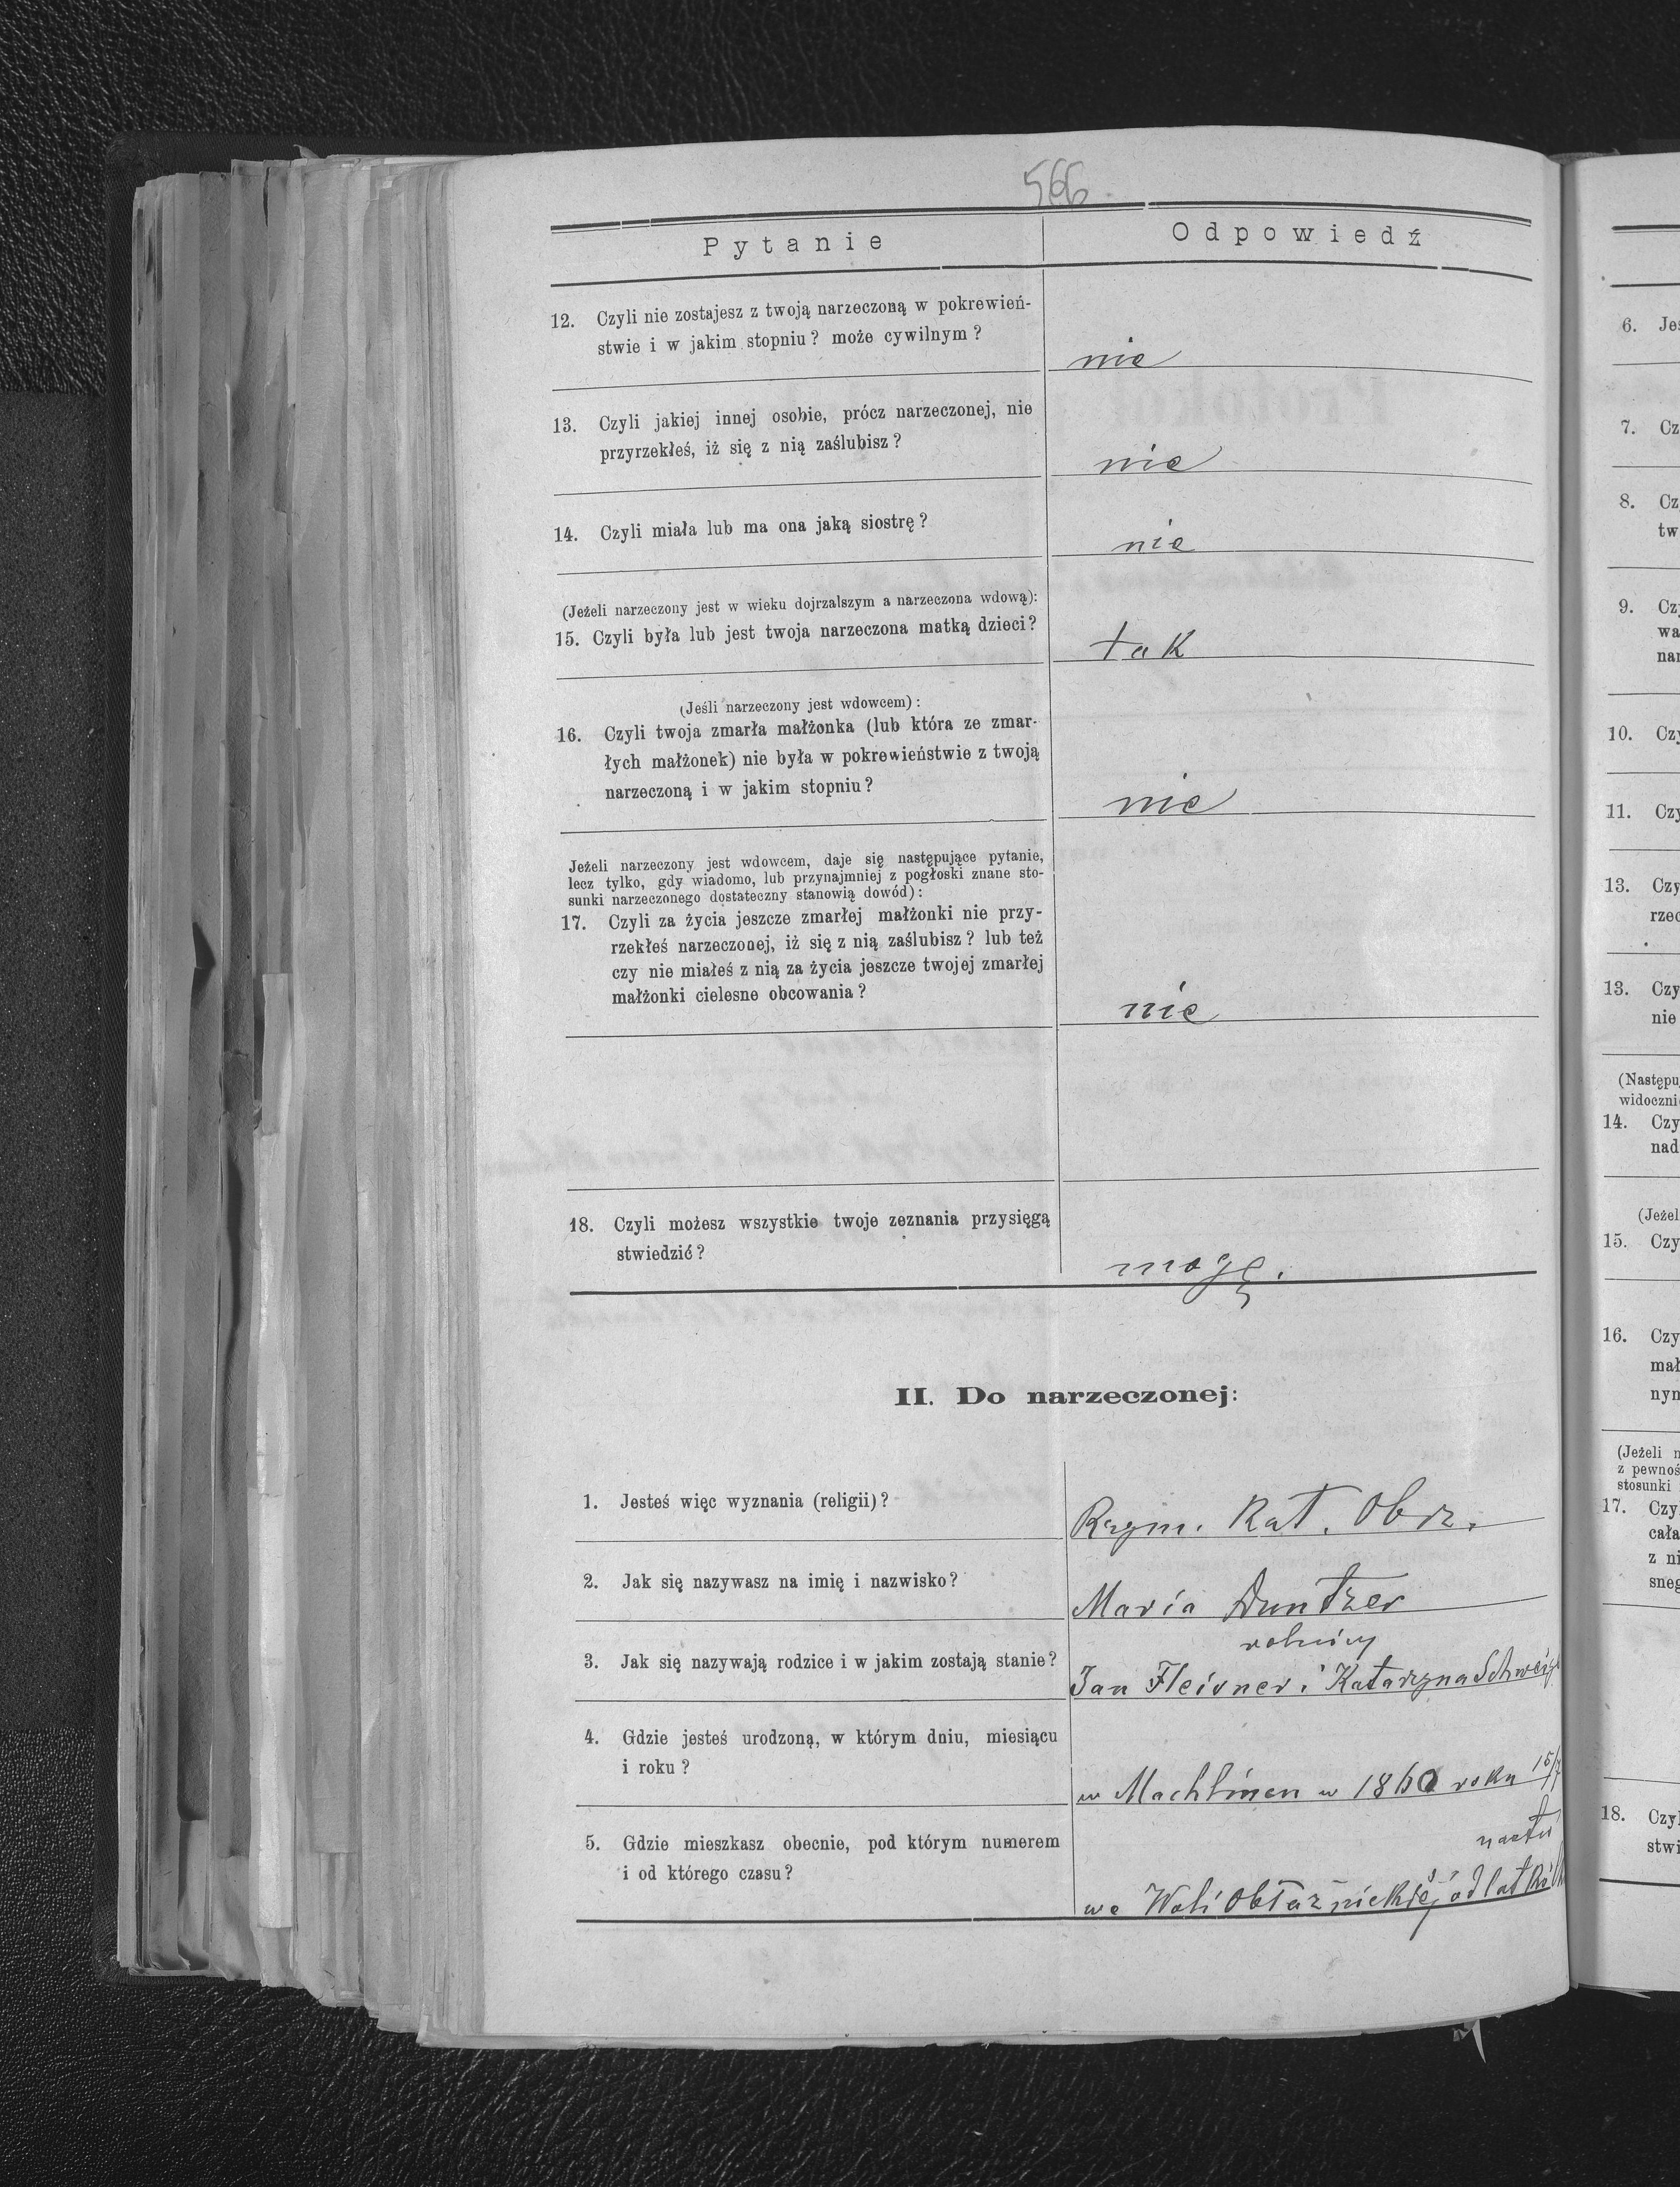 566
Pytanie
Odpowiedź
12. Czyli nie zostajesz z twoją narzeczoną w pokrewień-
stwie i w jakim stopniu? może cywilnym?
nie
13. Czyli jakiej innej osobie, prócz narzeczonej, nie
przyrzekłeś, iż się z nią zaślubisz?
nie
14. Czyli miała lub ma ona jaką siostrę?
nie
(Jeżeli narzeczony jest w wieku dojrzalszym a narzeczona wdową):
15. Czyli była lub jest twoja narzeczona matką dzieci?
tak
(Jeśli narzeczony jest wdowcem):
16. Czyli twoja zmarła małżonka (lub która ze zmar-
łych małżonek) nie była w pokrewieństwie z twoją
narzeczoną i w jakim stopniu?
nie
Jeżeli narzeczony jest wdowcem, daje się następujące pytanie,
lecz tylko, gdy wiadomo, lub przynajmniej z pogłoski znane sto-
sunki narzeczonego dostateczny stanowią dowód):
17. Czyli za życia jeszcze zmarłej małżonki nie przy-
rzekłeś narzeczonej, iż się z nią zaślubisz? lub też
czy nie miałeś z nią za życia jeszcze twojej zmarłej
małżonki cielesne obcowania?
nie
18. Czyli możesz wszystkie twoje zeznania przysięgą
stwiedzić?
mogę.
II. Do narzeczonej:
1. Jesteś więc wyznania (religii)?
Rzym. Kat. Obrz.
2. Jak się nazywasz na imię i nazwisko?
Maria
3. Jak się nazywają rodzice i w jakim zostają stanie?
rolnicy
Jan i Katarzyna
4. Gdzie jesteś urodzoną, w którym dniu, miesiącu
i roku?
w w 1860 roku 15/7
5. Gdzie mieszkasz obecnie, pod którym numerem
i od którego czasu?
we Woli od lat
6. Jes
7. Cz
8. Cz
tw
9. Czy
wa
nar
10. Czy
11. Czy
13. Czy
rzec
13. Czy
nie
(Następu
widoczni
14. Czy
nad
(Jeżel
15. Czy
16. Czy
mał
nym
(Jeżeli n
z pewnoś
stosunki
17. Czy
cała
z ni
sneg
18. Czyl
stwi